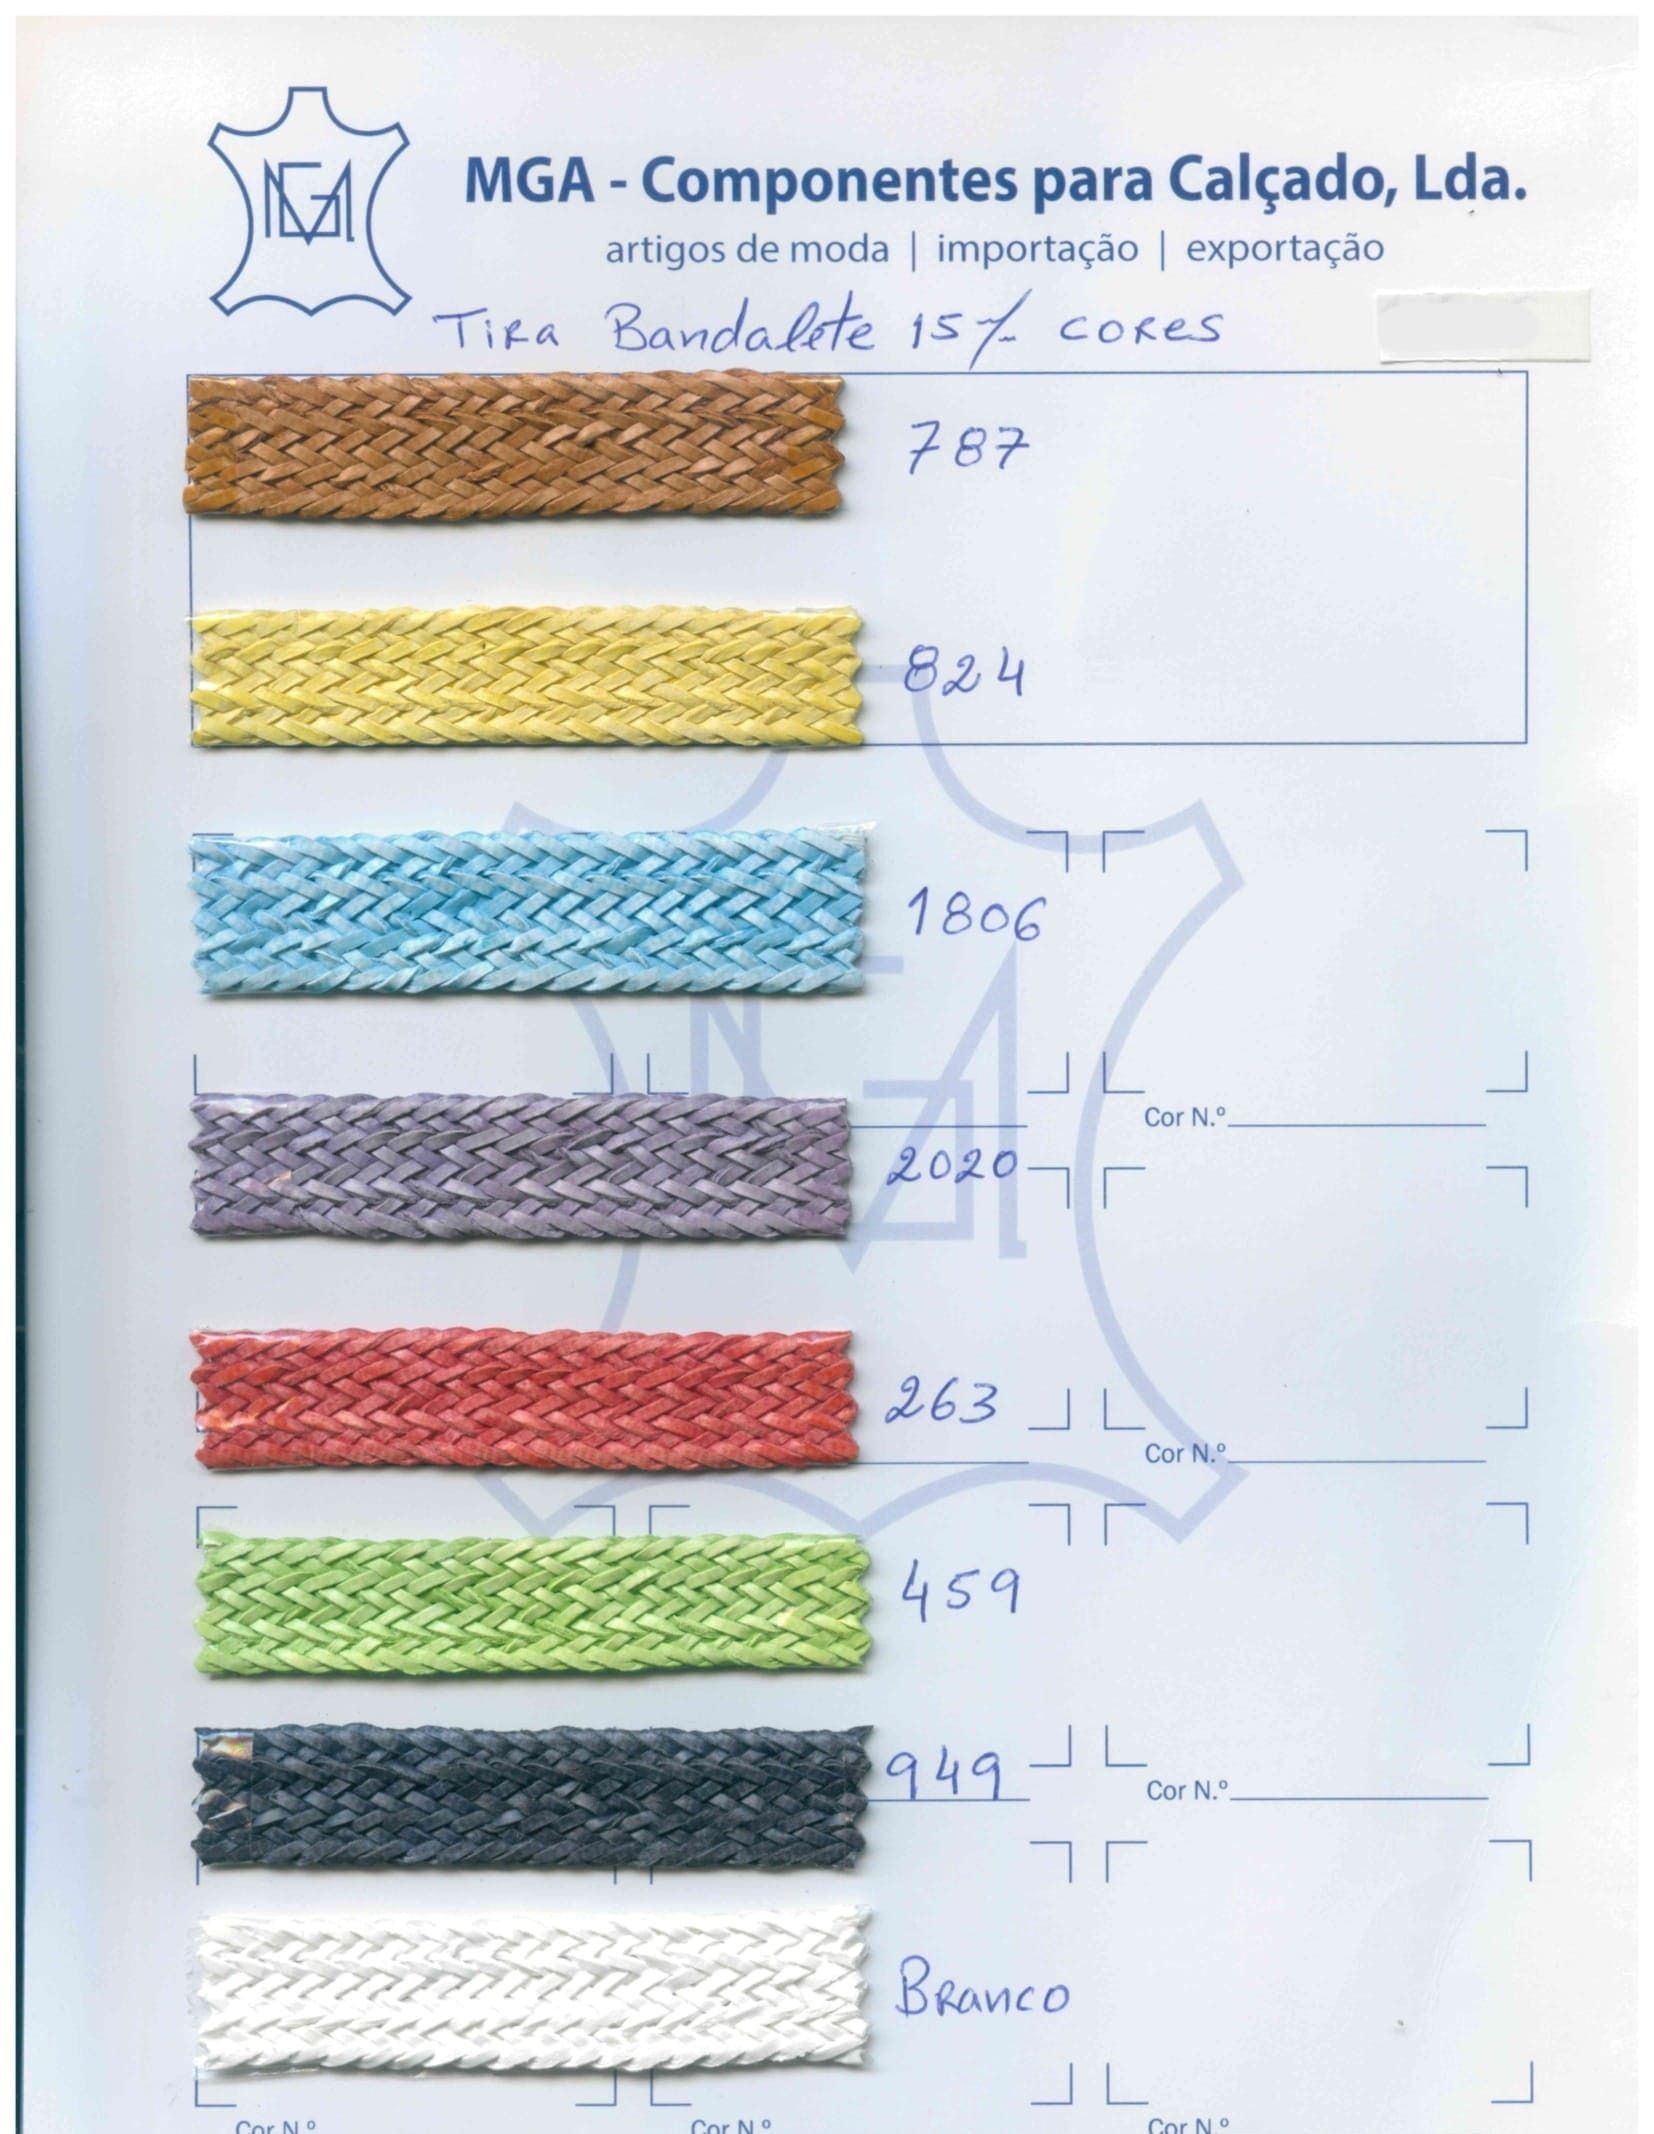 MGA
MGA - Componentes para Calçado, Lda.
artigos de moda | importação | exportação
Tira Bandalete 15 m/m cores
787
824
1806
Cor N.º
2020
263
Cor N.º
459
949
Cor N.º
Branco
Cor N.º Cor N.º Cor N.º